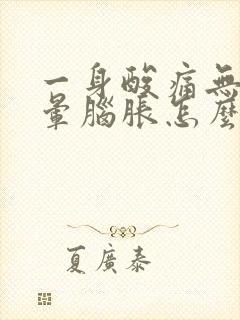 一身酸痛無
暈腦脹怎麼
夏廣泰